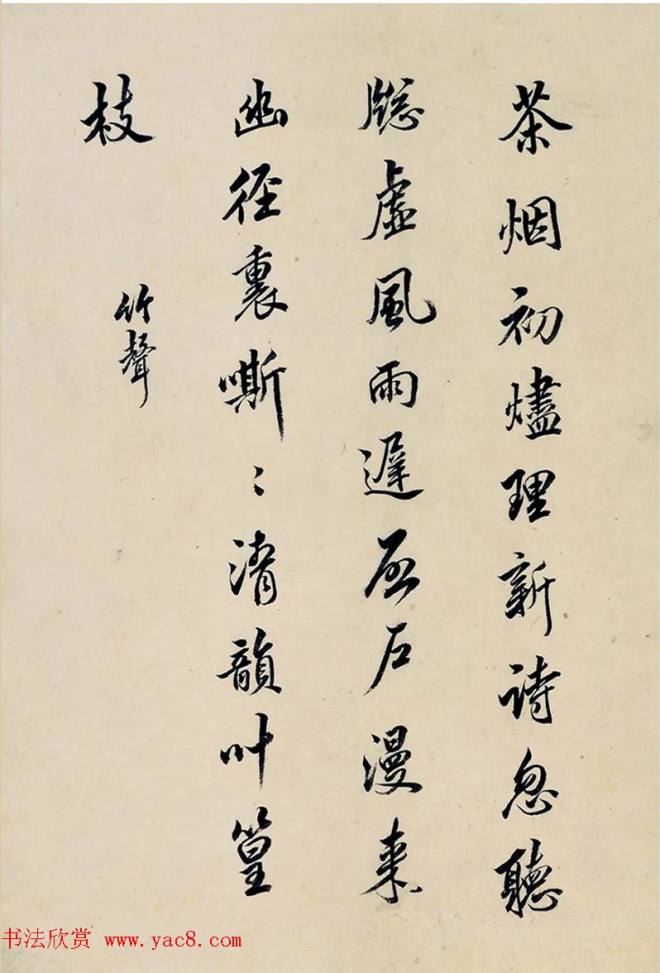 茶烟初燼理新诗忽聽
牕虛風雨遲启户漫来
幽径裏嘶〻清韻叶篁
枝
竹聲
书法欣赏 www.yac8.com